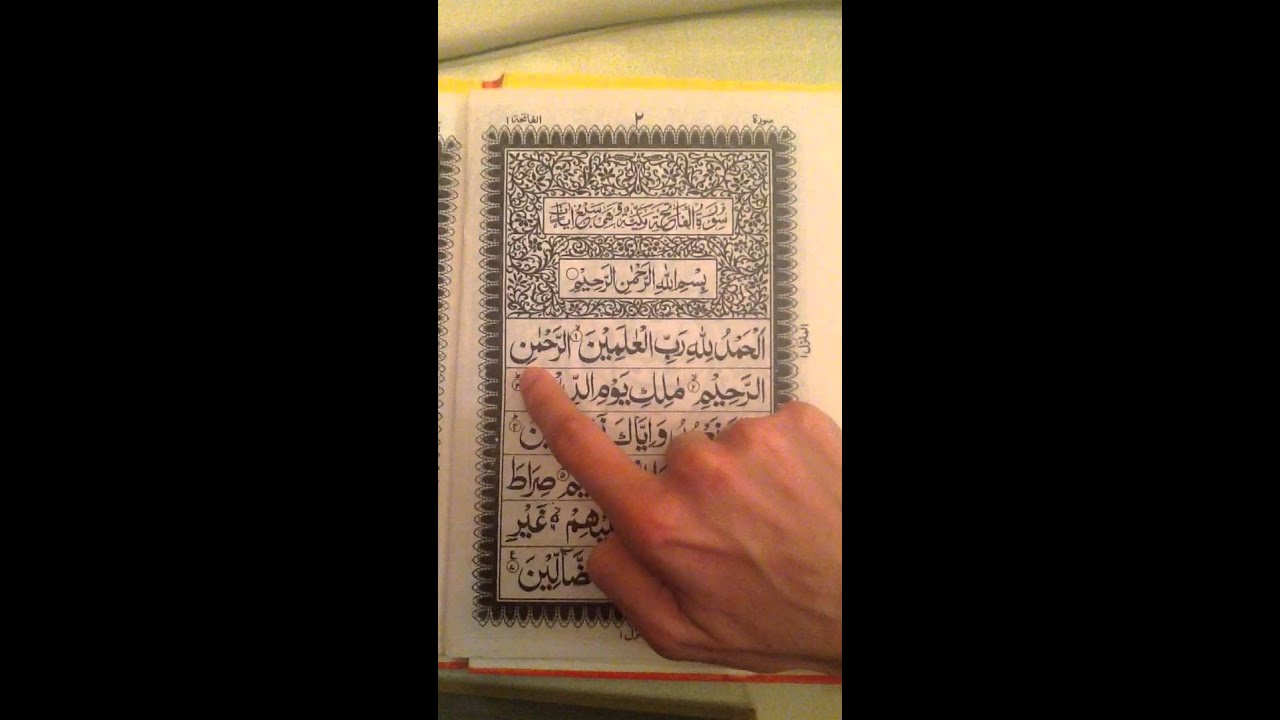 سورة ٢ الفاتحة ١
سُوْرَةُ الْفَاتِحَةِ مَكِّيَّةٌ وَّهِيَ سَبْعُ اٰيَاتٍ
بِسْمِ اللّٰهِ الرَّحْمٰنِ الرَّحِيْمِ
اَلْحَمْدُ لِلّٰهِ رَبِّ الْعٰلَمِيْنَ ١ الرَّحْمٰنِ
الرَّحِيْمِ ٢ مٰلِكِ يَوْمِ
نَعْبُدُ وَاِيَّاكَ
صِرَاطَ
غَيْرِ